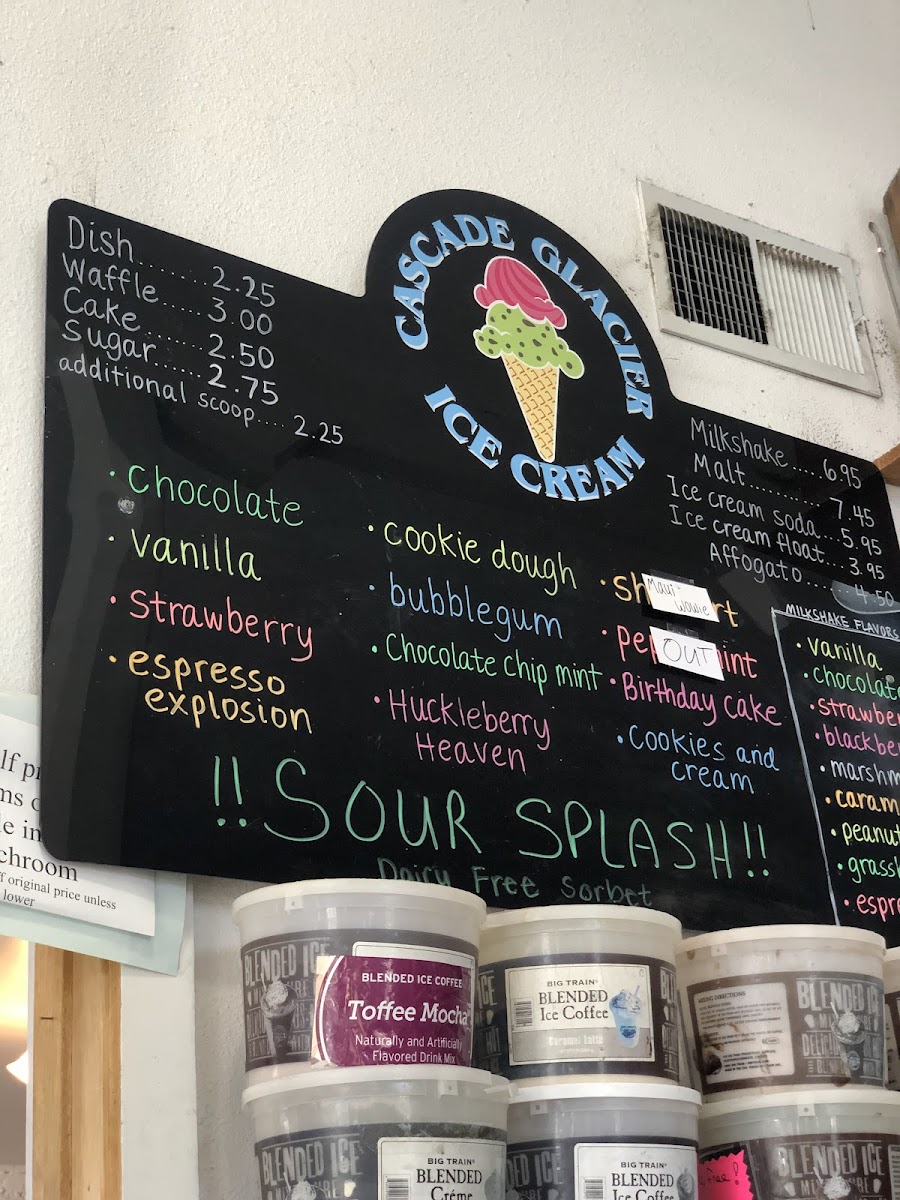 Dish.......2.25
Waffle.....3.00
Cake.......2.50
Sugar......2.75
additional scoop.... 2.25
CASCADE GLACIER
ICE CREAM
Milkshake....6.95
Malt..........7.45
Ice cream soda...5.95
Ice cream float...3.95
Affogato......4.50
• chocolate
• vanilla
• strawberry
• espresso
explosion
• cookie dough
• bubblegum
• Chocolate chip mint
• Huckleberry
Heaven
Maui-
wowie
OUT
• Birthday cake
• cookies and
cream
MILKSHAKE FLAVORS
• vanilla
• chocolate
• strawber
• blackbe
• marshm
• caram
• peanut
• grassh
• espre
!! SOUR SPLASH !!
Dairy Free Sorbet
chroom
original price unless
lower
BLENDED ICE
BLENDED ICE COFFEE
Toffee Mocha
Naturally and Artificially
Flavored Drink Mix
BIG TRAIN
BLENDED
Ice Coffee
Caramel Latte
MIXING DIRECTIONS
BLENDED ICE
BLENDED ICE
BIG TRAIN
BLENDED
Créme
BIG TRAIN
BLENDED
Ice Coffee
Free!
BLENDED ICE